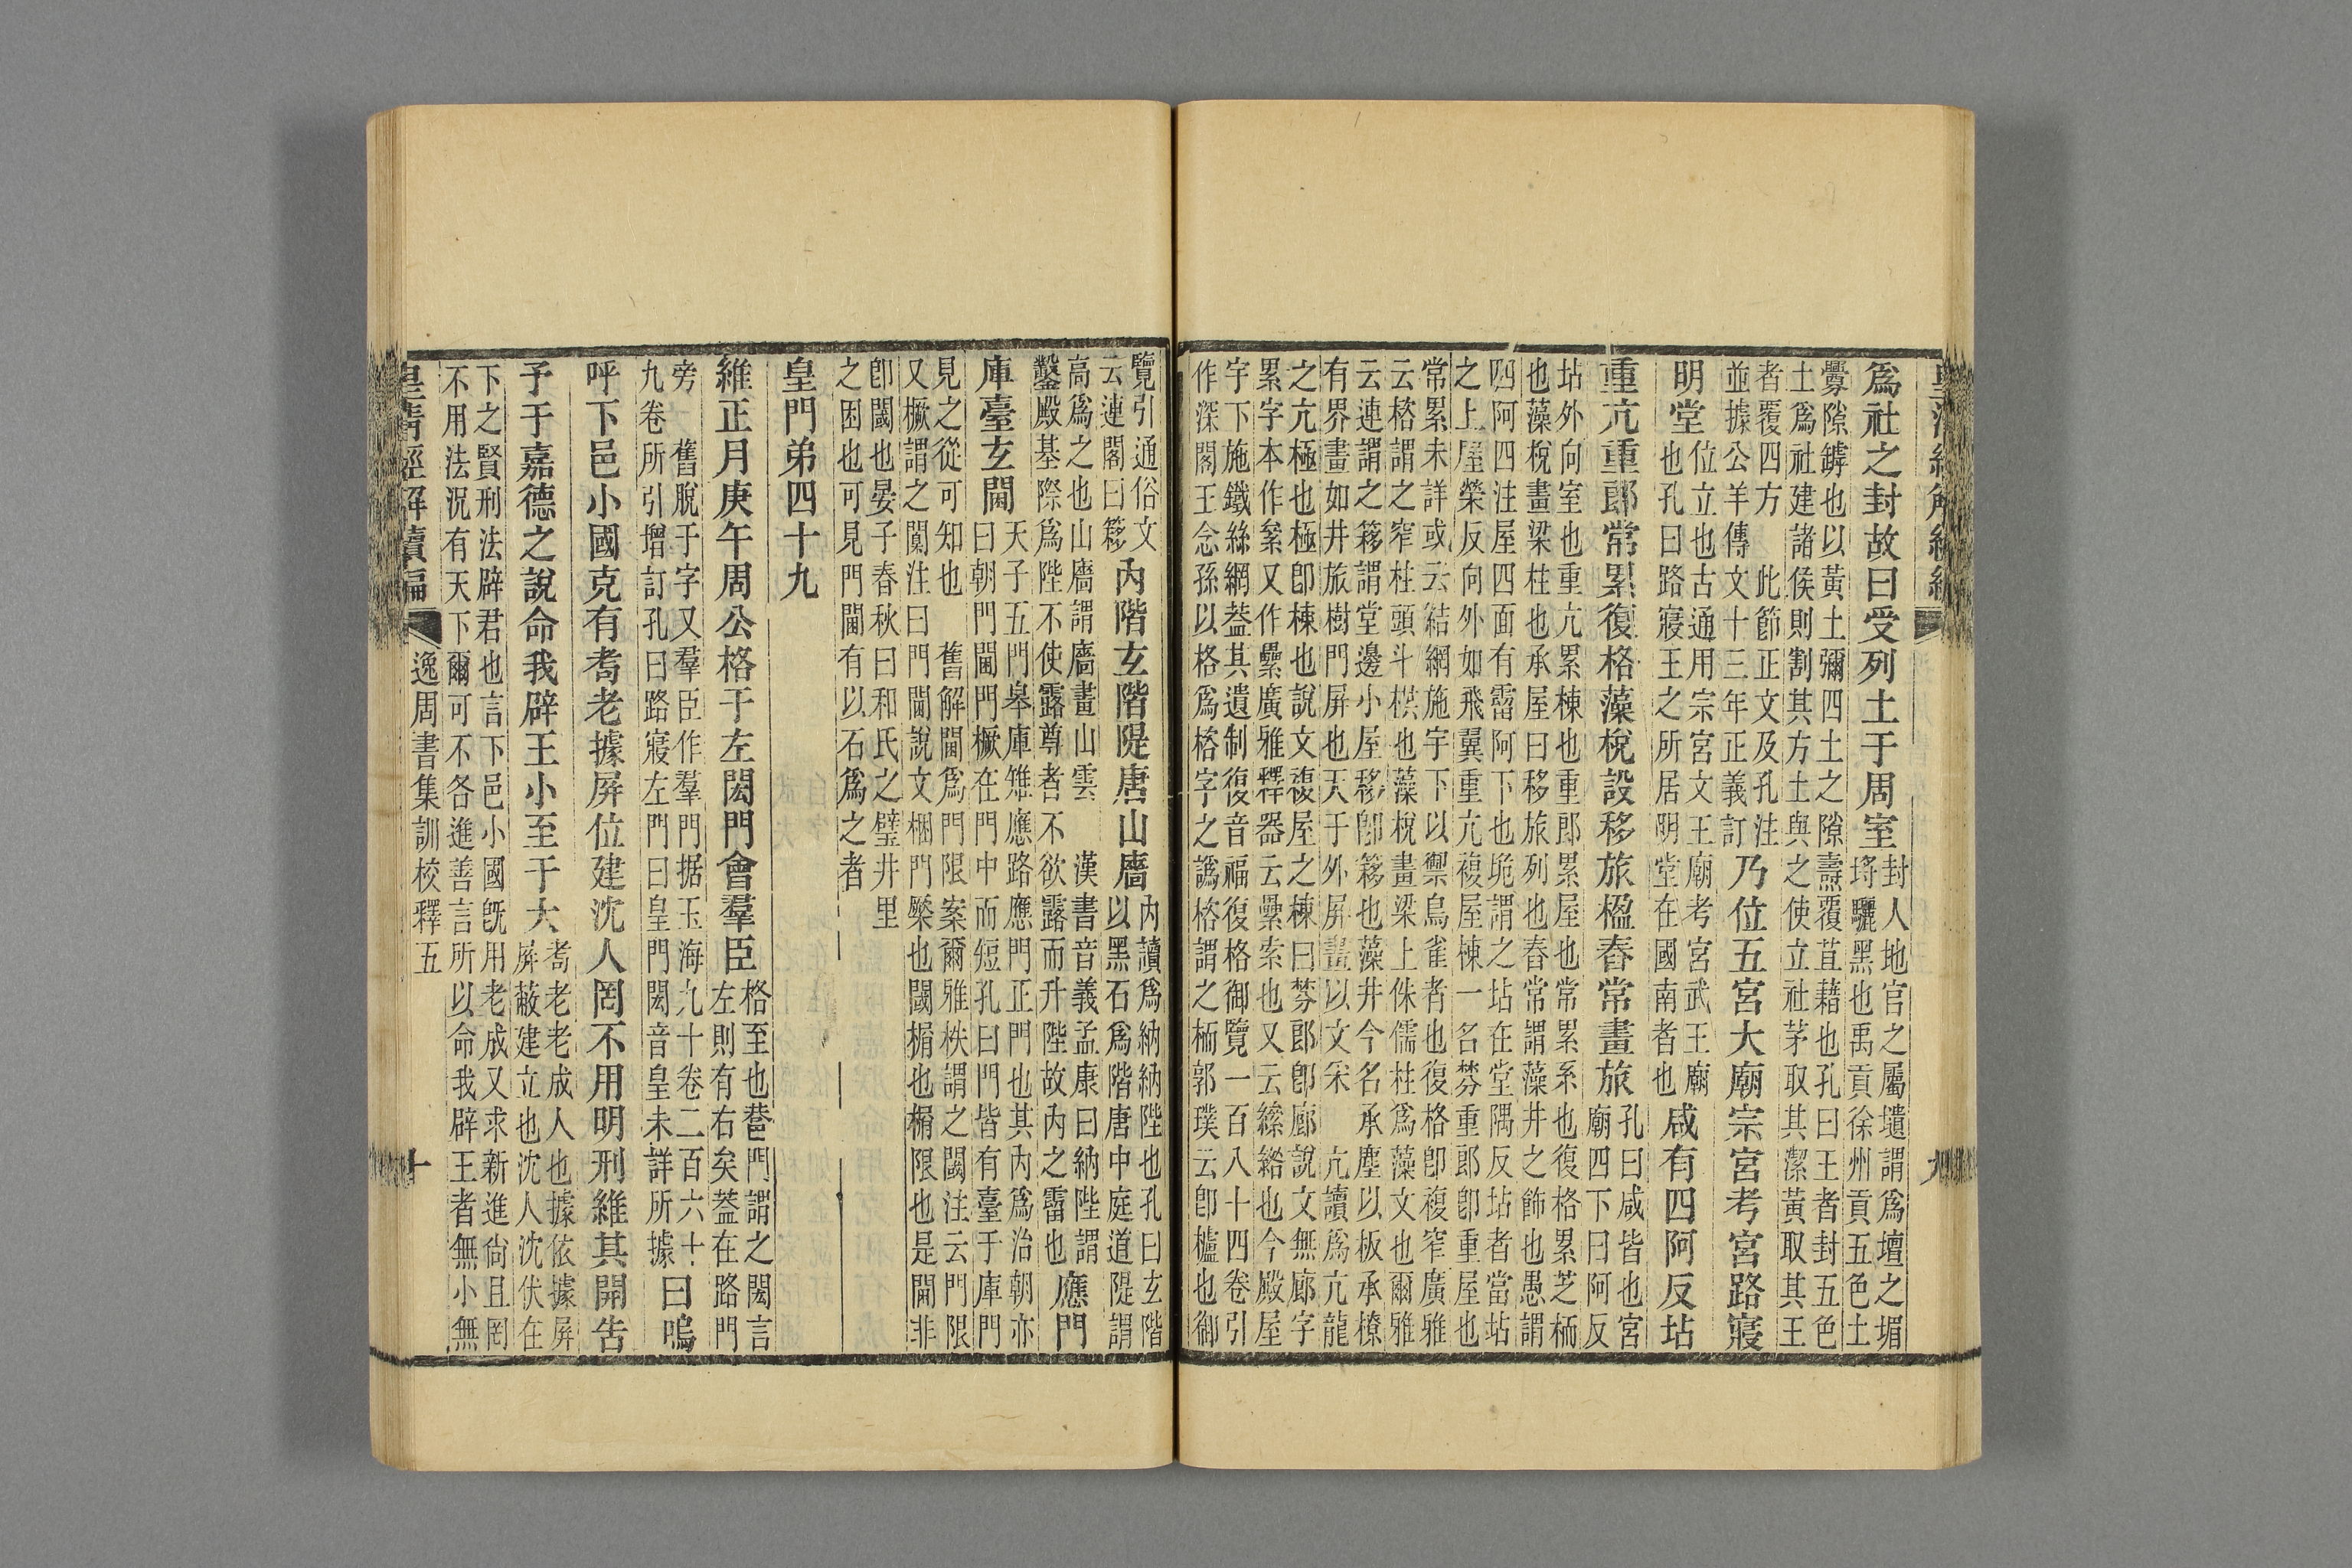 爲社之封故曰受列土于周室
封人地官之屬壝謂爲壇之堳
埒驪黑也禹貢徐州貢五色土
釁隙罅也以黃土彌四土之隙燾覆苴藉也孔曰王者封五色
土爲社建諸侯則割其方土與之使立社茅取其潔黃取其王
者覆四方　此節正文及孔注
並據公羊傳文十三年正義訂
乃位五宮大廟宗宮考宮路寢
明堂
位立也古通用宗宮文王廟考宮武王廟
也孔曰路寢王之所居明堂在國南者也
咸有四阿反坫
重亢重郎常累復格藻梲設移旅楹舂常畫旅
孔曰咸皆也宮
廟四下曰阿反
坫外向室也重亢累棟也重郎累屋也常累系也復格累芝栭
也藻梲畫梁柱也承屋曰移旅列也舂常謂藻井之飾也愚謂
四阿四注屋四面有霤阿下也垝謂之坫在堂隅反坫者當坫
之上屋榮反向外如飛翼重亢複屋棟一名棼重郎卽重屋也
常累未詳或云結網施宇下以禦鳥雀者也復格卽複窄廣雅
云楁謂之窄柱頭斗栱也藻梲畫梁上侏儒柱爲藻文也爾雅
云連謂之簃謂堂邊小屋移卽簃也藻井今名承塵以板承橑
有界畫如井旅樹門屏也天子外屏畫以文采　亢讀爲亢龍
之亢極也極卽棟也說文複屋之棟曰棼郎卽廊說文無廊字
累字本作絫又作纍廣雅釋器云纍索也又云縤綌也今殿屋
宇下施鐵絲網葢其遺制復音福復格御覽一百八十四卷引
作深閣王念孫以格爲楁字之譌楁謂之栭郭璞云卽櫨也御
覽引通俗文
云連閣曰簃
內階玄階隄唐山廧
內讀爲納納陛也孔曰玄階
以黑石爲階唐中庭道隄謂
高爲之也山廧謂廧畫山雲　漢書音義孟康曰納陛謂
鑿殿基際爲陛不使露尊者不欲露而升陛故內之霤也
應門
庫臺玄閫
天子五門皋庫雉應路應門正門也其內爲治朝亦
曰朝門閫門橛在門中而短孔曰門皆有臺于庫門
見之從可知也　舊解閫爲門限案爾雅柣謂之閾注云門限
又橛謂之闑注曰門閫說文梱門橜也閾榍也榍限也是閫非
卽閾也晏子春秋曰和氏之璧井里
之困也可見門閫有以石爲之者
皇門弟四十九
維正月庚午周公格于左閎門會羣臣
格至也䦚門謂之閎言
左則有右矣葢在路門
旁　舊脫于字又羣臣作羣門据玉海九十卷二百六十
九卷所引增訂孔曰路寢左門曰皇門閎音皇未詳所據
曰嗚
呼下邑小國克有耇老據屏位建沈人罔不用明刑維其開告
予于嘉德之說命我辟王小至于大
耇老老成人也據依據屏
屏蔽建立也沈人沈伏在
下之賢刑法辟君也言下邑小國旣用老成又求新進尙且罔
不用法況有天下爾可不各進善言所以命我辟王者無小無
皇清經解續編　逸周書集訓校釋五　十